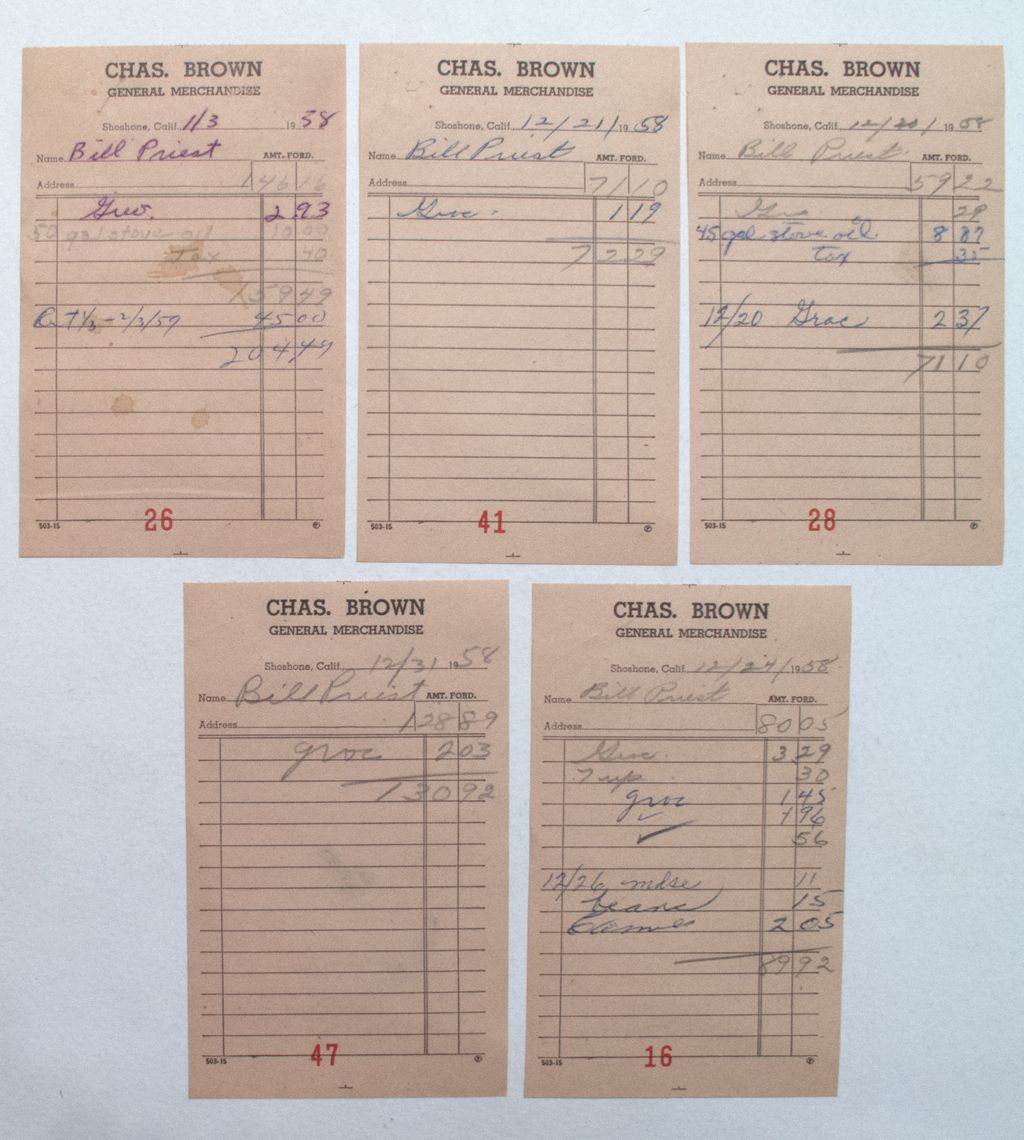 CHAS. BROWN
GENERAL MERCHANDISE
Shoshone, Calif. 1/3 1958
Name Bill Priest AMT. FORD.
Address 146 16
Groc. 2.93
50 gal stove oil 10 00
Tax 40
159 49
1/3 - 2/3/59 45 00
204 49
503-15
26
CHAS. BROWN
GENERAL MERCHANDISE
Shoshone, Calif. 12/21/1958
Name Bill Priest AMT. FORD.
Address 71 10
Groc. 1 19
72 29
503-15
41
CHAS. BROWN
GENERAL MERCHANDISE
Shoshone, Calif. 12/20/1958
Name Bill Priest AMT. FORD.
Address 59 22
29
45 gal stove oil 8 87
tax 35
12/20 Groc 2 37
71 10
503-15
28
CHAS. BROWN
GENERAL MERCHANDISE
Shoshone, Calif. 12/31 1958
Name Bill Priest AMT. FORD.
Address 128 89
groc 2 03
130 92
503-15
47
CHAS. BROWN
GENERAL MERCHANDISE
Shoshone, Calif. 12/24/1958
Name Bill Priest AMT. FORD.
Address 80 05
Groc. 3 29
7 up 30
groc 1 45
1 96
56
12/26 mdse 11
beans 15
2 05
89 92
503-15
16